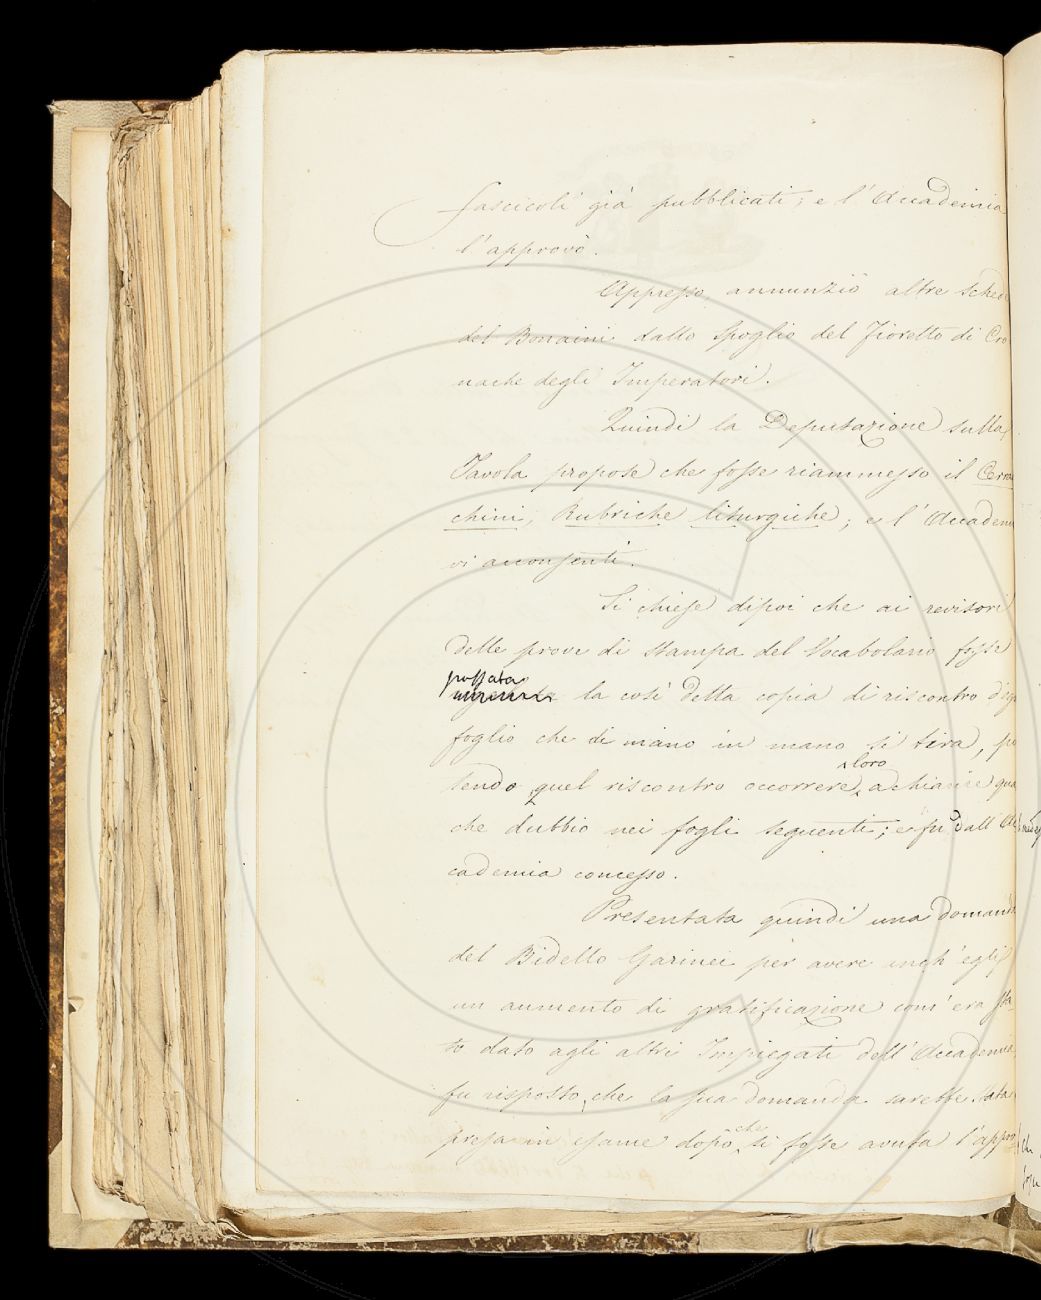 fascicoli già pubblicati; e l'Accademia
l'approvò.
Appresso, annunziò altre schede
del Bonaini dallo spoglio del Fioretto di Cro
nache degli Imperatori.
Quindi la Deputazione sulla
Tavola propose che fosse riammesso il Cerra
chini, Rubriche liturgiche; e l'Accademia
vi acconsentì.
Si chiese dipoi che ai revisori
delle prove di stampa del Vocabolario fosse
passata
la così detta copia di riscontro d'ogni
foglio che di mano in mano si tira, po
loro
tendo quel riscontro occorrere a chiarire qual
che dubbio nei fogli seguenti; e fu dall'Ac
cademia concesso.
Presentata quindi una domanda
del Bidello Garinei per avere anch'egli
un aumento di gratificazione com'era sta
to dato agli altri Impiegati dell'Accademia,
fu risposto, che la sua domanda sarebbe stata
che
presa in esame dopo si fosse avuta l'appro